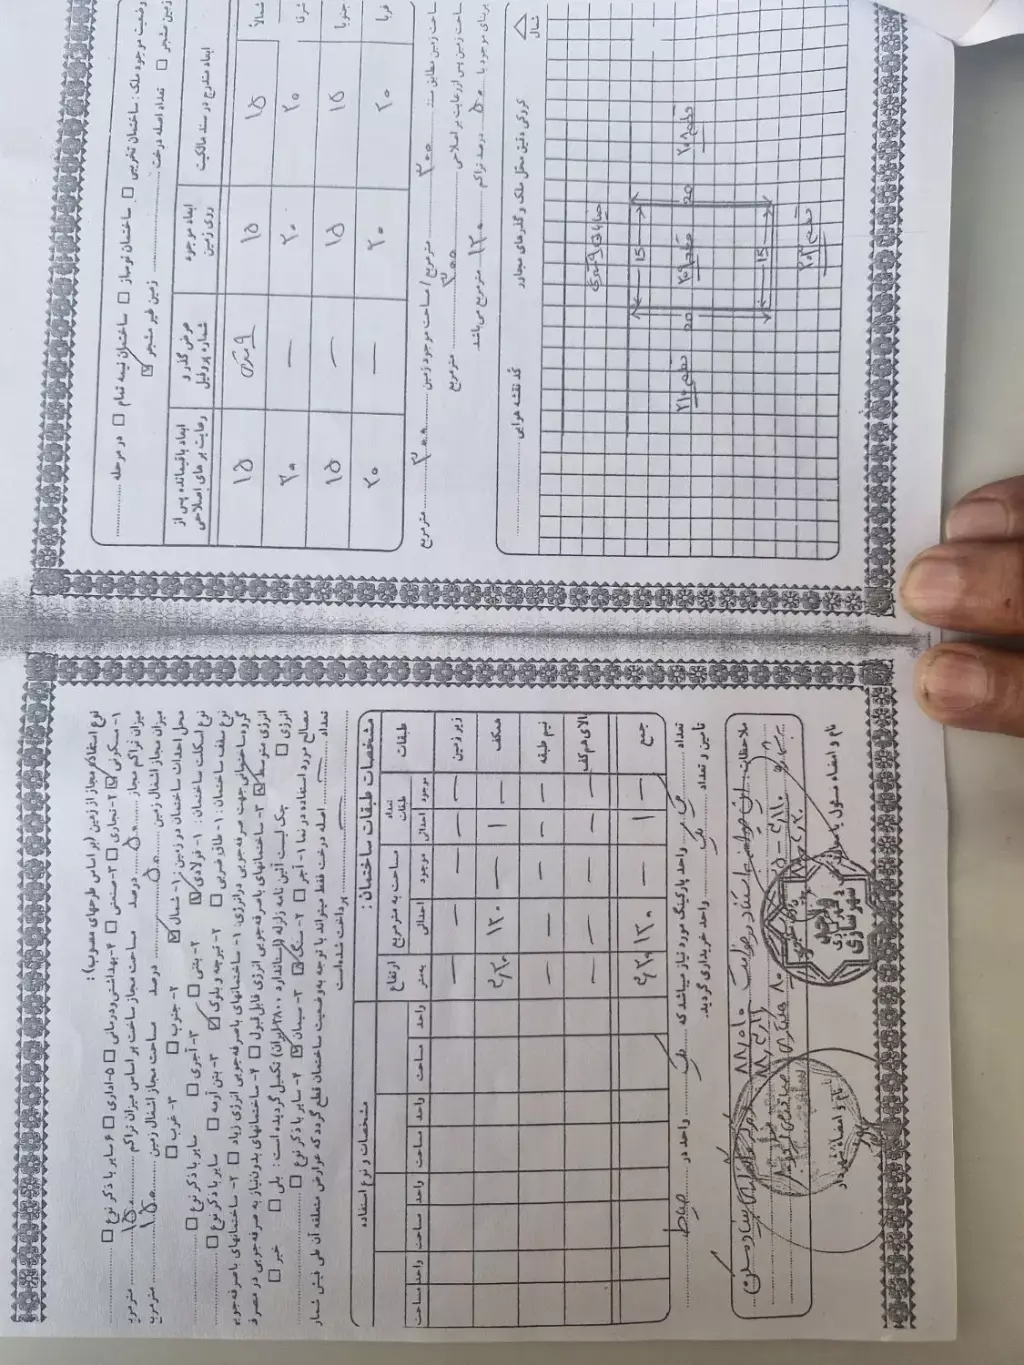 وضعیت موجود ملک : ساختمان تخریبی □ ساختمان نوساز □ ساختمان نیمه تمام □ در مرحله
زمین مشجر □ تعداد اصله درخت زمین غیر مشجر ☑
ابعاد مندرج در سند مالکیت
ابعاد موجود روی زمین
عرض گذر و شماره پروفیل
ابعاد باقیمانده پس از رعایت بر های اصلاحی
شمالاً ۱۵ ۱۵ ۹ متری ۱۵
شرقاً ۲۰ ۲۰ — ۲۰
جنوباً ۱۵ ۱۵ — ۱۵
غرباً ۲۰ ۲۰ — ۲۰
مساحت زمین مطابق سند ۳۰۰ مترمربع / مساحت موجود زمین ۳۰۰ مترمربع
مساحت زمین پس از رعایت بر اصلاحی ۳۰۰ مترمربع
بر بنای موجود با ۵۰ درصد تراکم ۱۳۰ مترمربع می باشد.
شمال
کروکی دقیق محل ملک و گذرهای مجاور
کد نقشه هوایی
خیابان ۹ متری
15
قطعه ۲۰۸
20
قطعه ۲۰۹
20
قطعه ۲۱۰
15
قطعه ۲۰۳
نوع استفاده مجاز از زمین (بر اساس طرحهای مصوب) :
۱- مسکونی ☑ ۲- تجاری □ ۳- صنعتی □ ۴- بهداشتی و درمانی □ ۵- اداری □ ۶ سایر با ذکر نوع □
میزان تراکم مجاز ۵۰ درصد مساحت مجاز ساخت بر اساس میزان تراکم ۱۵۰ مترمربع
میزان مجاز اشغال زمین ۵۰ درصد مساحت مجاز اشغال زمین ۱۵۰ مترمربع
محل احداث ساختمان در زمین : ۱- شمال ☑ ۲- جنوب □ ۳- غرب □
نوع اسکلت ساختمان : ۱- فولادی ☑ ۲- بتنی □ ۳- آجری □ سایر با ذکر نوع □
نوع سقف ساختمان : ۱- طاق ضربی □ ۲- تیرچه و بلوک ☑ ۳- بتن آرمه □ سایر با ذکر نوع □
گروه ساختمانی جهت صرفه جویی در انرژی: ۱- ساختمانهای با صرفه جویی انرژی زیاد □ ۲- ساختمانهای با صرفه جویی
انرژی متوسط ☑ ۳- ساختمانهای با صرفه جویی انرژی قابل قبول □ ۴- ساختمانهای بدون نیاز به صرفه جویی در مصرف
انرژی □ چک لیست آئین نامه زلزله (استاندارد ۲۸۰۰ ایران) تکمیل گردیده است : بلی □ خیر □
مصالح مورد استفاده در نما ۱- آجر □ ۲- سنگ ☑ ۳- سیمان ☑ ۴- سایر با ذکر نوع □
تعداد — اصله درخت فقط میتواند با توجه به وضعیت ساختمان قطع گردد که عوارض متعلقه آن طی فیش شماره
پرداخت شده است
مشخصات طبقات ساختمان :
مشخصات و نوع استفاده
طبقات تعداد طبقات مساحت به مترمربع ارتفاع
موجود احداثی موجود احداثی بمتر واحد مساحت واحد مساحت واحد مساحت واحد مساحت
زیر زمین — — — — —
همکف — ۱ — ۱۳۰ ۳/۲۰
نیم طبقه — — — — —
بالای همکف — — — — —
جمع — ۱ — ۱۳۰ ۳/۲۰
تعداد یک واحد پارکینگ مورد نیاز میباشد که یک واحد در حیاط
تامین و تعداد — واحد خریداری گردید.
ملاحظات :
نام و امضاء مسئول یا معاون
واحد فنی و شهرسازی
نام و امضاء شهردار